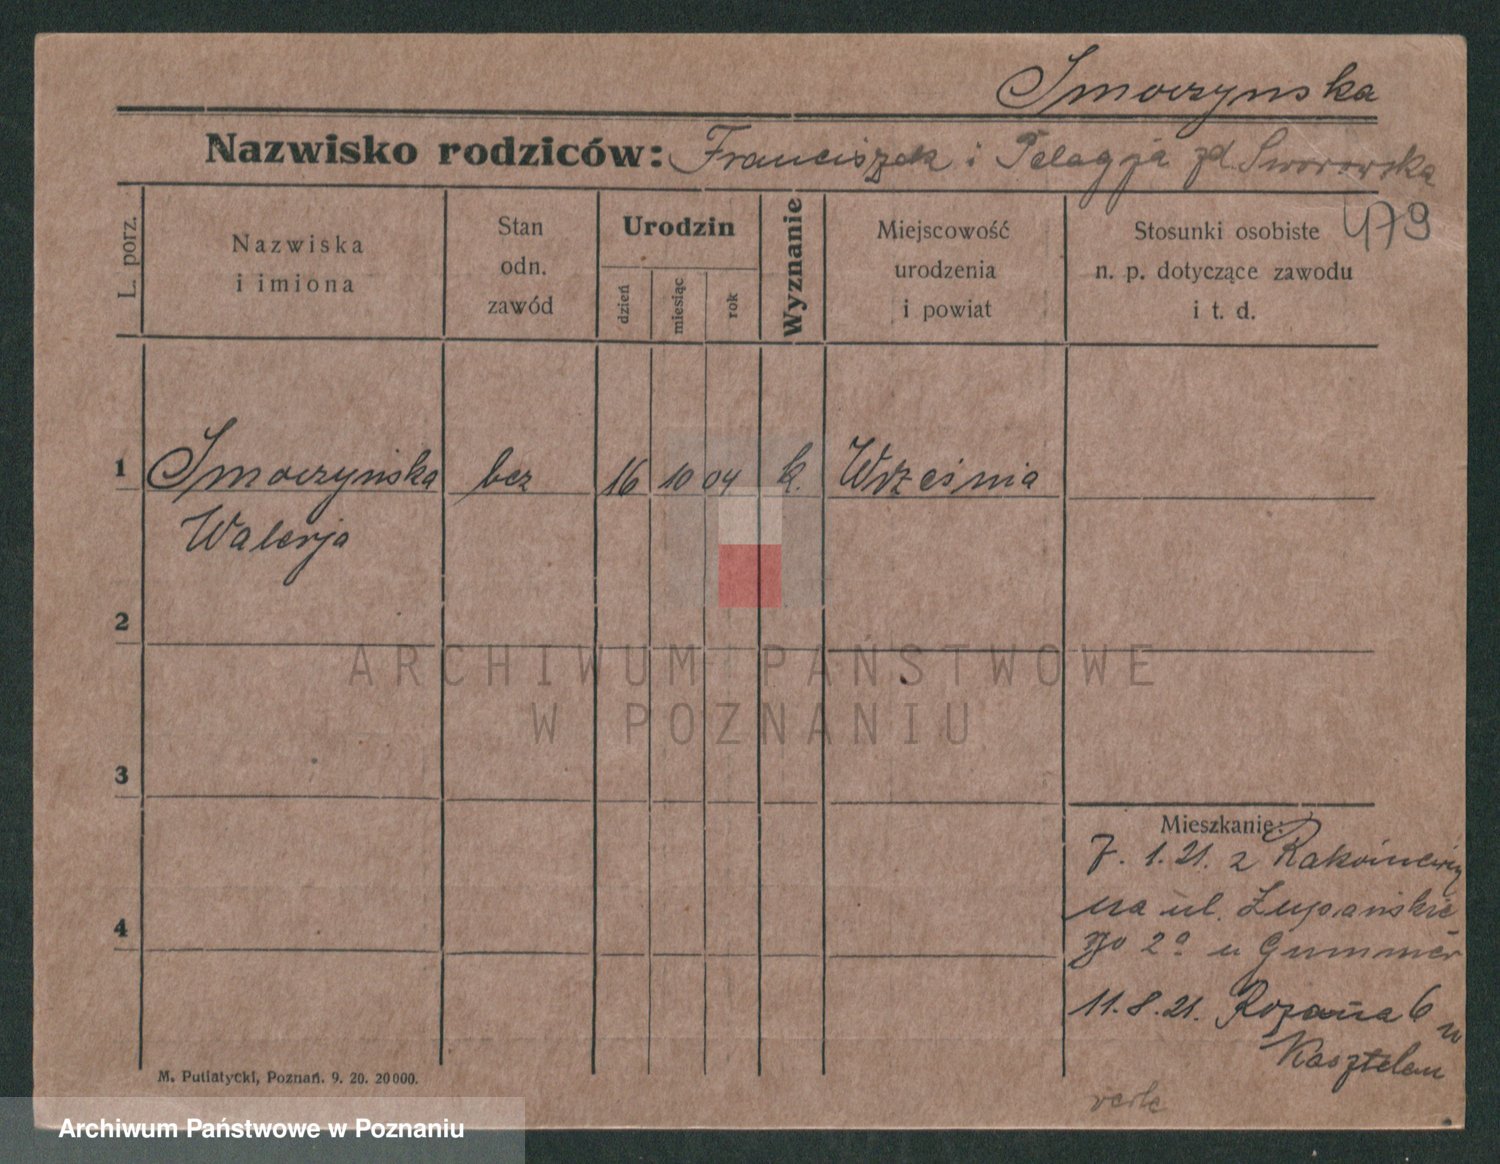 Smoczynska
Nazwisko rodziców: Franciszek i Pelagja zd. Sworowska
479
L. porz.
Nazwiska
i imiona
Stan
odn.
zawód
Urodzin
dzień
miesiąc
rok
Wyznanie
Miejscowość
urodzenia
i powiat
Stosunki osobiste
n. p. dotyczące zawodu
i t. d.
1 Smoczyńska bez 16 10 04 k. Września
Walerja
2
ARCHIWUM PAŃSTWOWE
W POZNANIU
3
Mieszkanie:
7. 1. 21. z
na ul. Żupańskie
go 2a u Gummer
4
11.8.21. Różana 6 u
Kasztelan
verte
M. Putiatycki, Poznań. 9. 20. 20000.
Archiwum Państwowe w Poznaniu